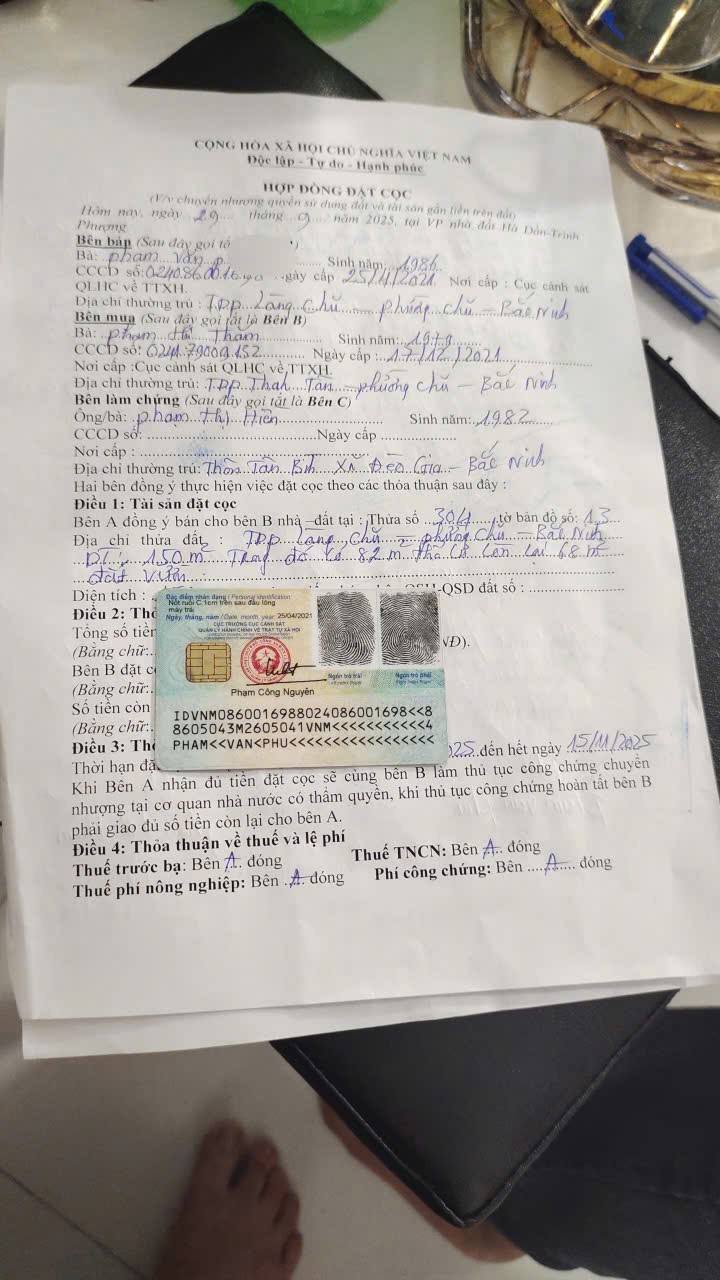 CỘNG HÒA XÃ HỘI CHỦ NGHĨA VIỆT NAM
Độc lập - Tự do - Hạnh phúc
HỢP ĐỒNG ĐẶT CỌC
(V/v chuyển nhượng quyền sử dụng đất và tài sản gắn liền trên đất)
Hôm nay, ngày 29 tháng 9 năm 2025, tại VP nhà đất Hà Dần-Trình
Phượng
Bên bán (Sau đây gọi
Bà: phạm văn p Sinh năm: 1986
CCCD số: gày cấp 25/4/2021 Nơi cấp : Cục cảnh sát
QLHC về TTXH.
Địa chỉ thường trú : TDP Làng Chũ - phường chũ - Bắc Ninh
Bên mua (Sau đây gọi tắt là Bên B)
Bà: phạm thị Thắm Sinh năm: 1979
CCCD số: 024179009152 Ngày cấp : 17/12/2021
Nơi cấp :Cục cảnh sát QLHC về TTXH.
Địa chỉ thường trú: TDP Thanh Tân - phường chũ - Bắc Ninh
Bên làm chứng (Sau đây gọi tắt là Bên C)
Ông/bà: phạm thị Hiền Sinh năm: 1982
CCCD số: Ngày cấp
Nơi cấp :
Địa chỉ thường trú: Thôn Tân Xã Đèo Gia - Bắc Ninh
Hai bên đồng ý thực hiện việc đặt cọc theo các thỏa thuận sau đây :
Điều 1: Tài sản đặt cọc
Bên A đồng ý bán cho bên B nhà –đất tại : Thửa số 301 tờ bản đồ số: 13
Địa chỉ thửa đất : TDP Làng Chũ, phường chũ - Bắc Ninh
DT: 150 m² Trong đó có 82 m² thổ cư còn lại 68 m²
đất vườn
Diện tích : QSH-QSD đất số :
Điều 2: Th
Tổng số tiền VNĐ).
(Bằng chữ:
Bên B đặt c
(Bằng chữ:
Số tiền còn
(Bằng chữ:
Điều 3: Th
Thời hạn đặ 25 đến hết ngày 15/11/2025
Khi Bên A nhận đủ tiền đặt cọc sẽ cùng bên B làm thủ tục công chứng chuyển
nhượng tại cơ quan nhà nước có thẩm quyền, khi thủ tục công chứng hoàn tất bên B
phải giao đủ số tiền còn lại cho bên A.
Điều 4: Thỏa thuận về thuế và lệ phí
Thuế trước bạ: Bên A đóng Thuế TNCN: Bên A đóng
Thuế phí nông nghiệp: Bên A đóng Phí công chứng: Bên A đóng
Đặc điểm nhân dạng / Personal identification:
Nốt ruồi C.1cm trên sau đầu lông
mày trái
Ngày, tháng, năm / Date, month, year: 25/04/2021
CỤC TRƯỞNG CỤC CẢNH SÁT
QUẢN LÝ HÀNH CHÍNH VỀ TRẬT TỰ XÃ HỘI
Ngón trỏ trái Ngón trỏ phải
Phạm Công Nguyên
IDVNM0860016988024086001698<<8
8605043M2605041VNM<<<<<<<<<<<4
PHAM<<VAN<PHU<<<<<<<<<<<<<<<<<